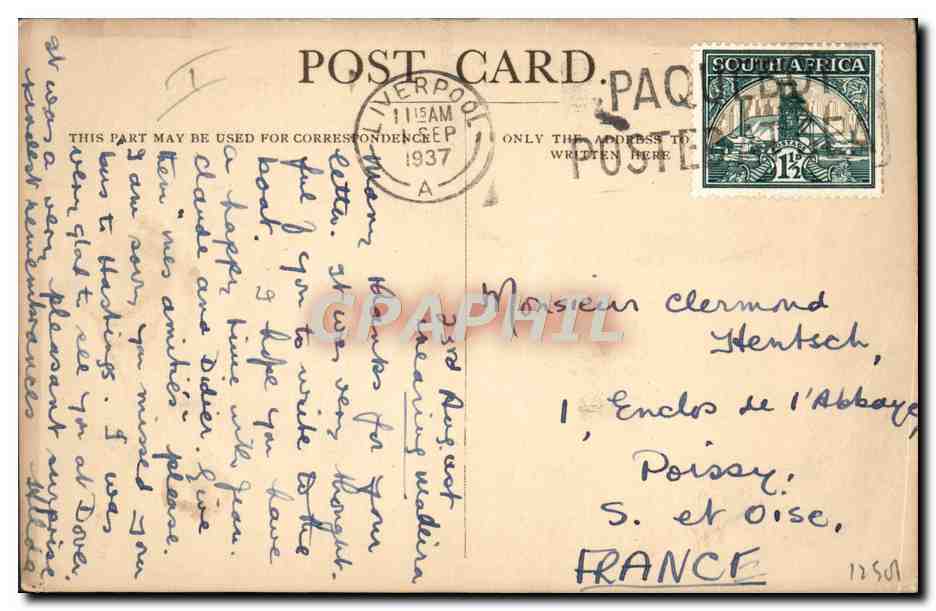 POST CARD.
THIS PART MAY BE USED FOR CORRESPONDENCE
ONLY THE ADDRESS TO
WRITTEN HERE
LIVERPOOL
11 15 AM
SEP
1937
A
PAQUEBOT
POSTED AT SEA
SOUTH AFRICA
POSTAGE
1½D
1
August
nearing Madeira
Many thanks for your
letter. It was very thought-
ful of you to write to the
boat. I hope you have
a happy time with Jean
Claude and Didier. Give
them "mes amitiés" please.
I am sorry you missed your
bus to Hastings. I was
very glad to see you at Dover.
It was a very pleasant surprise
Kindest remembrances
Monsieur Clermond
Hentsch,
1, Enclos de l'Abbaye,
Poissy,
S. et Oise,
FRANCE
CPAPHIL